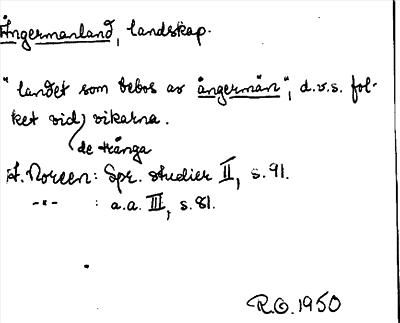 Ångermanland, landskap.
"landet som bebos av ångermän", d.v.s. fol-
ket vid vikarna.
de trånga
A. Noreen: Spr. studier II, s. 91.
-"- : a.a. III, s. 81.
R.O. 1950